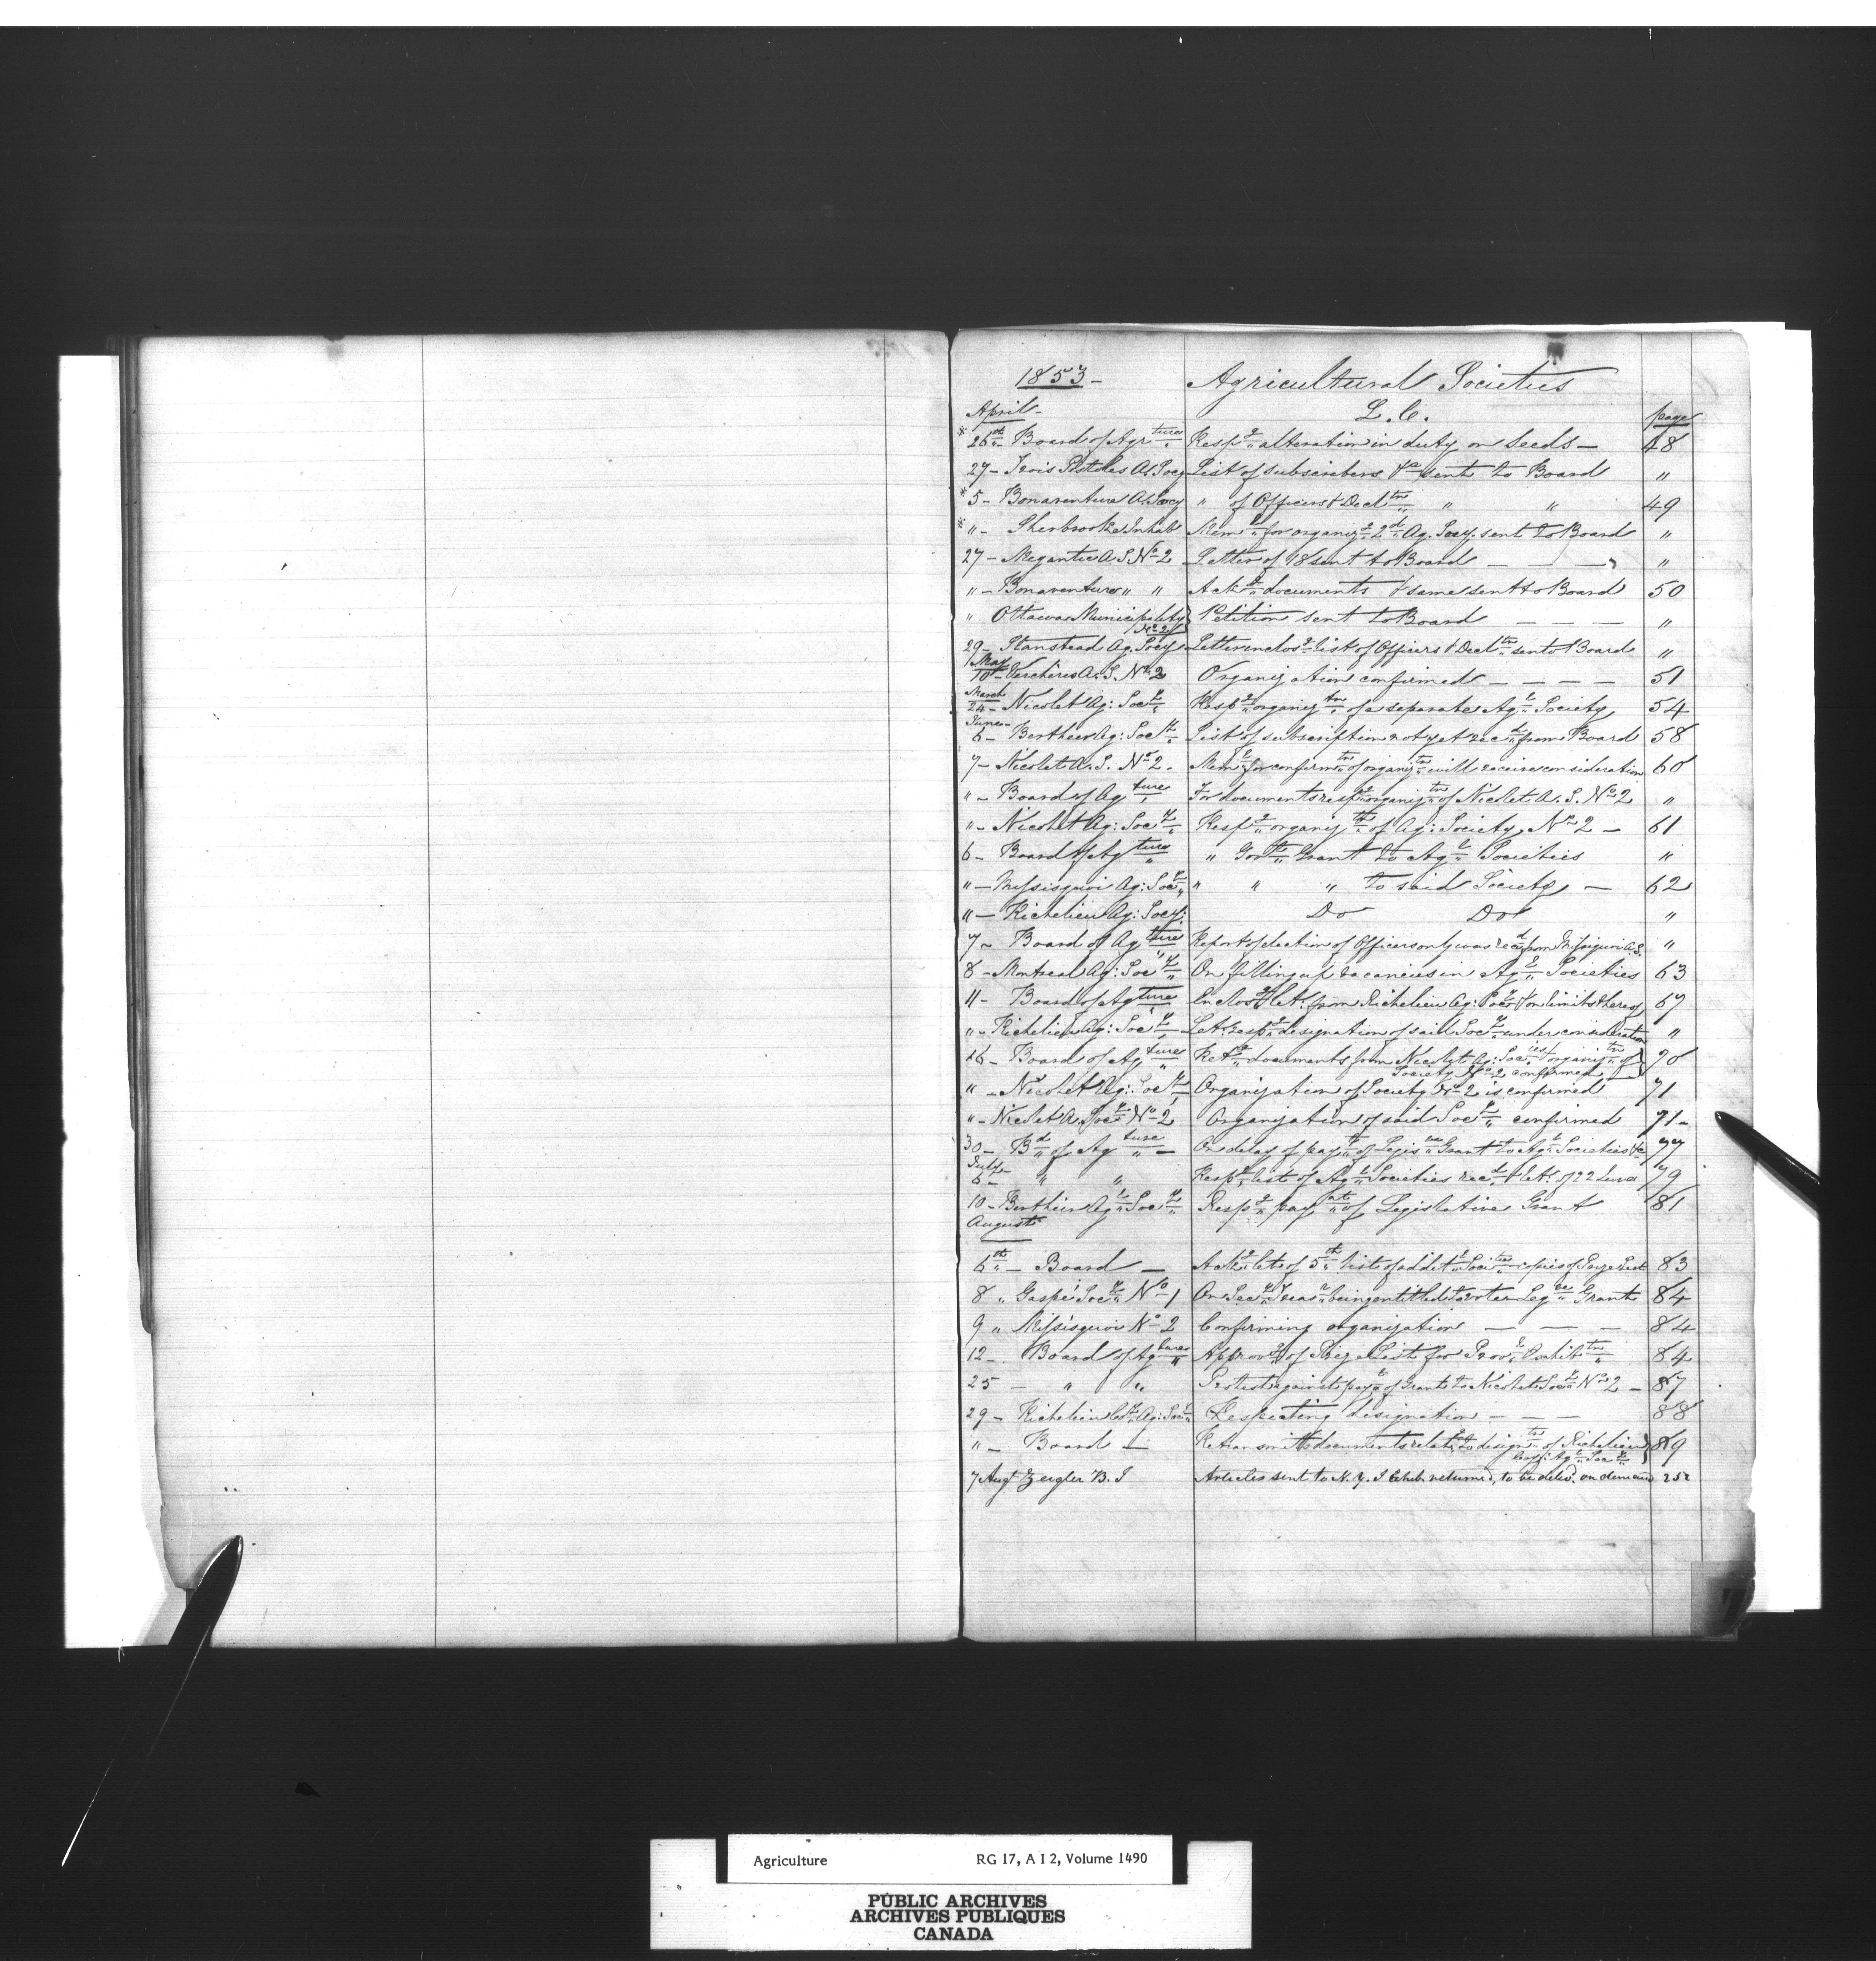 1853 - Agricultural Societies
April - L. C. page
* 26th - Board of Agrture Respg alteration in duty on Seeds - 48
27 - Trois Pistoles A. Socy List of subscribers &c sent to Board "
* 5 - Bonaventure A. Socy " of Officers & Decltn " " 49
* " - Sherbrooke Inhabts Meml for organizg 2d Ag. Socy. sent to Board "
27 - Megantic A. S. No 2 Letter of 18 sent to Board - - - "
" - Bonaventure " " Ackg documents & same sent to Board 50
" Ottawa Municipality No 2 } Petition sent to Board - - - "
29 - Stanstead Ag. Socy Letter enclosg list of Officers & Decltn sent to Board "
May
10 - Verchères A. S. No 2 Organization confirmed - - - - 51
March
24 - Nicolet Ag: Socy Respg organiztn of a separate Agl Society 54
June -
6 - Berthier Ag: Socy List of subscription not yet recd from Board 58
7 - Nicolet A. S. No 2 - Meml for confirmtn of organiztn will receive consideration 60
" - Board of Agture For documents respg organiztn of Nicolet A. S. No 2 "
" - Nicolet Ag: Socy Respg organiztn of Ag: Society No 2 - 61
6 - Board of Agture " Grant to Agl Societies "
" - Missisquoi Ag: Socy " " " to said Society - 62
" - Richelieu Ag: Socy: Do Do "
7 - Board of Agture Report of election of Officers only was recd from Missisquoi A. S. "
8 - Montreal Ag: Socy On filling up vacancies in Agl Societies 63
11 - Board of Agture Enclosg let. from Richelieu Ag: Socy & on limits thereof 67
" - Richelieu Ag: Socy Let. respg designation of said Socy under consideration "
26 - Board of Agture Retg documents from Nicolet Ag: Socies & organiztn of } 70
Society No 2 confirmed
" - Nicolet Ag: Socy Organization of Society No 2 is confirmed 71
" - Nicolet A. Socy No 2 Organization of said Socy confirmed 71 -
30 - Bd of Agture - On delay of payt of Legisve Grant to Agl Societies &c 77
July -
6 - " " Respg list of Agl Societies recd & let. of 22 June 79
10 - Berthier Agl Socy Respg payt of Legislative Grant 81
August
6th - Board - Ackg let. of 5th list of additl Socties copies of Prize List 83
8 " Gaspé Socy No 1 On Secy Treasr being entitled to vote Legve Grant 84
9 " Missisquoi No 2 Confirming organization - - - 84
12 - Board of Agture Approvg of Prize List for Provl Exhibtn 84
25 - " " Protest against payt of Grant to Nicolet Socy No 2 - 87
29 - Richelieu Coy Ag: Socy Respecting designation - - - 88
" - Board - Retransmitts documents relatg to designtn of Richelieu } 89
Coy Agl Socy
7 Augt Zeigler B. I Articles sent to N. Y. I Exhib. returned, to be delivd. on demand 252
Agriculture RG 17, A I 2, Volume 1490
PUBLIC ARCHIVES
ARCHIVES PUBLIQUES
CANADA